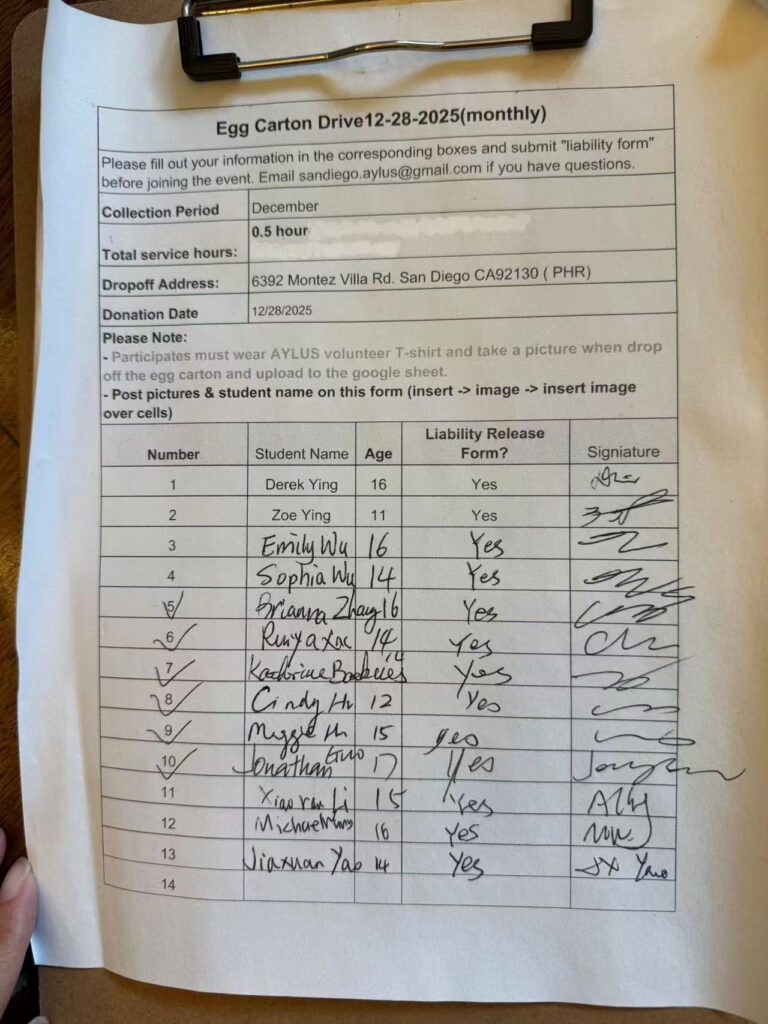 Egg Carton Drive12-28-2025(monthly)
Please fill out your information in the corresponding boxes and submit "liability form"
before joining the event. Email sandiego.aylus@gmail.com if you have questions.
Collection Period December
Total service hours: 0.5 hour
Dropoff Address: 6392 Montez Villa Rd. San Diego CA92130 ( PHR)
Donation Date 12/28/2025
Please Note:
- Participates must wear AYLUS volunteer T-shirt and take a picture when drop
off the egg carton and upload to the google sheet.
- Post pictures & student name on this form (insert -> image -> insert image
over cells)
Number Student Name Age Liability Release Form? Signiature
1 Derek Ying 16 Yes
2 Zoe Ying 11 Yes
3 Emily Wu 16 Yes
4 Sophia Wu 14 Yes
5 Brianna Zhang 16 Yes
6 14 Yes
7 14 Yes
8 Cindy 12 Yes
9 Maggie 15 yes
10 Jonathan Guo 17 Yes
11 Li 15 Yes
12 Michael 16 Yes
13 Jiaxuan Yao 14 Yes JX Yao
14